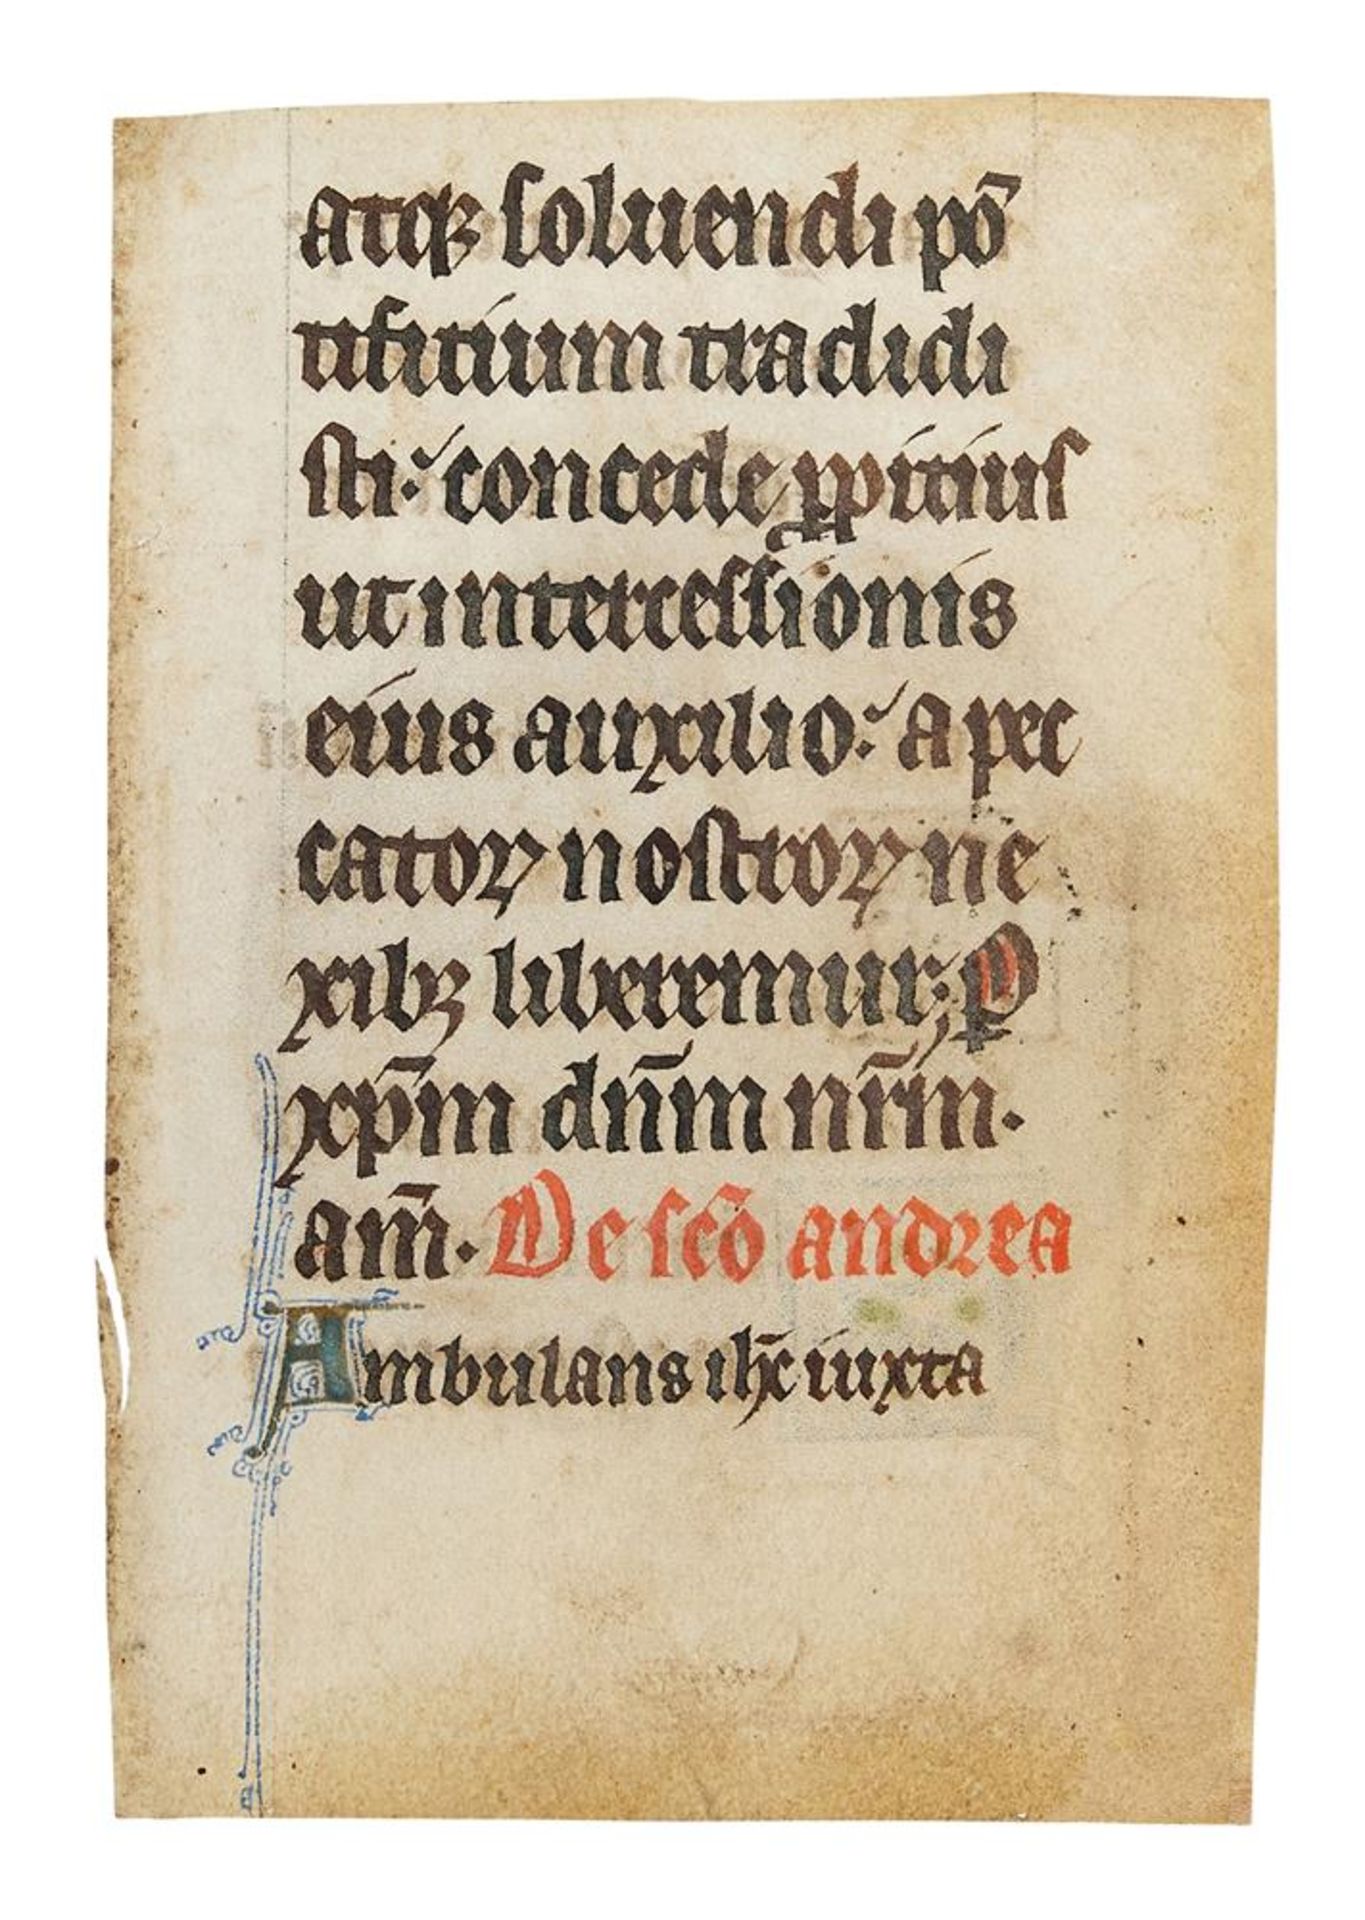 atqꝫ soluendi põ
tifitium tradidi
sti: concede ꝓpitius
ut intercessionis
eius auxilio: a pec
catoꝝ nostroꝝ ne
xibꝫ liberemur; ꝑ
xp̄m dn̄m nr̄m.
am̄. De sc̄o andrea
Ambulans ihc̄ iuxta